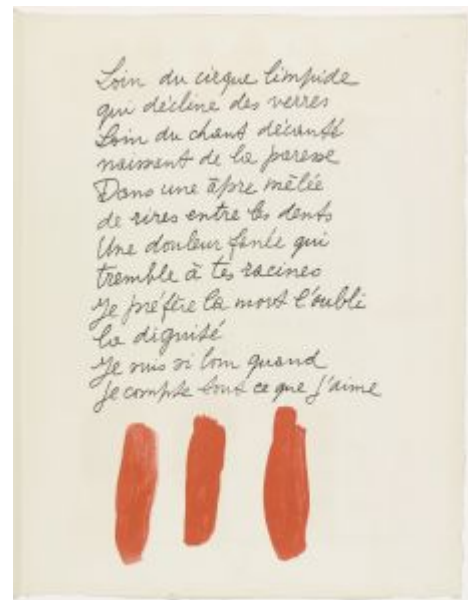 Loin du cirque limpide
qui décline des verres
Loin du chant décanté
naissant de la paresse
Dans une âpre mêlée
de rires entre les dents
Une douleur fanée qui
tremble à tes racines
Je préfère la mort l'oubli
la dignité
Je suis si loin quand
je compte tout ce que j'aime